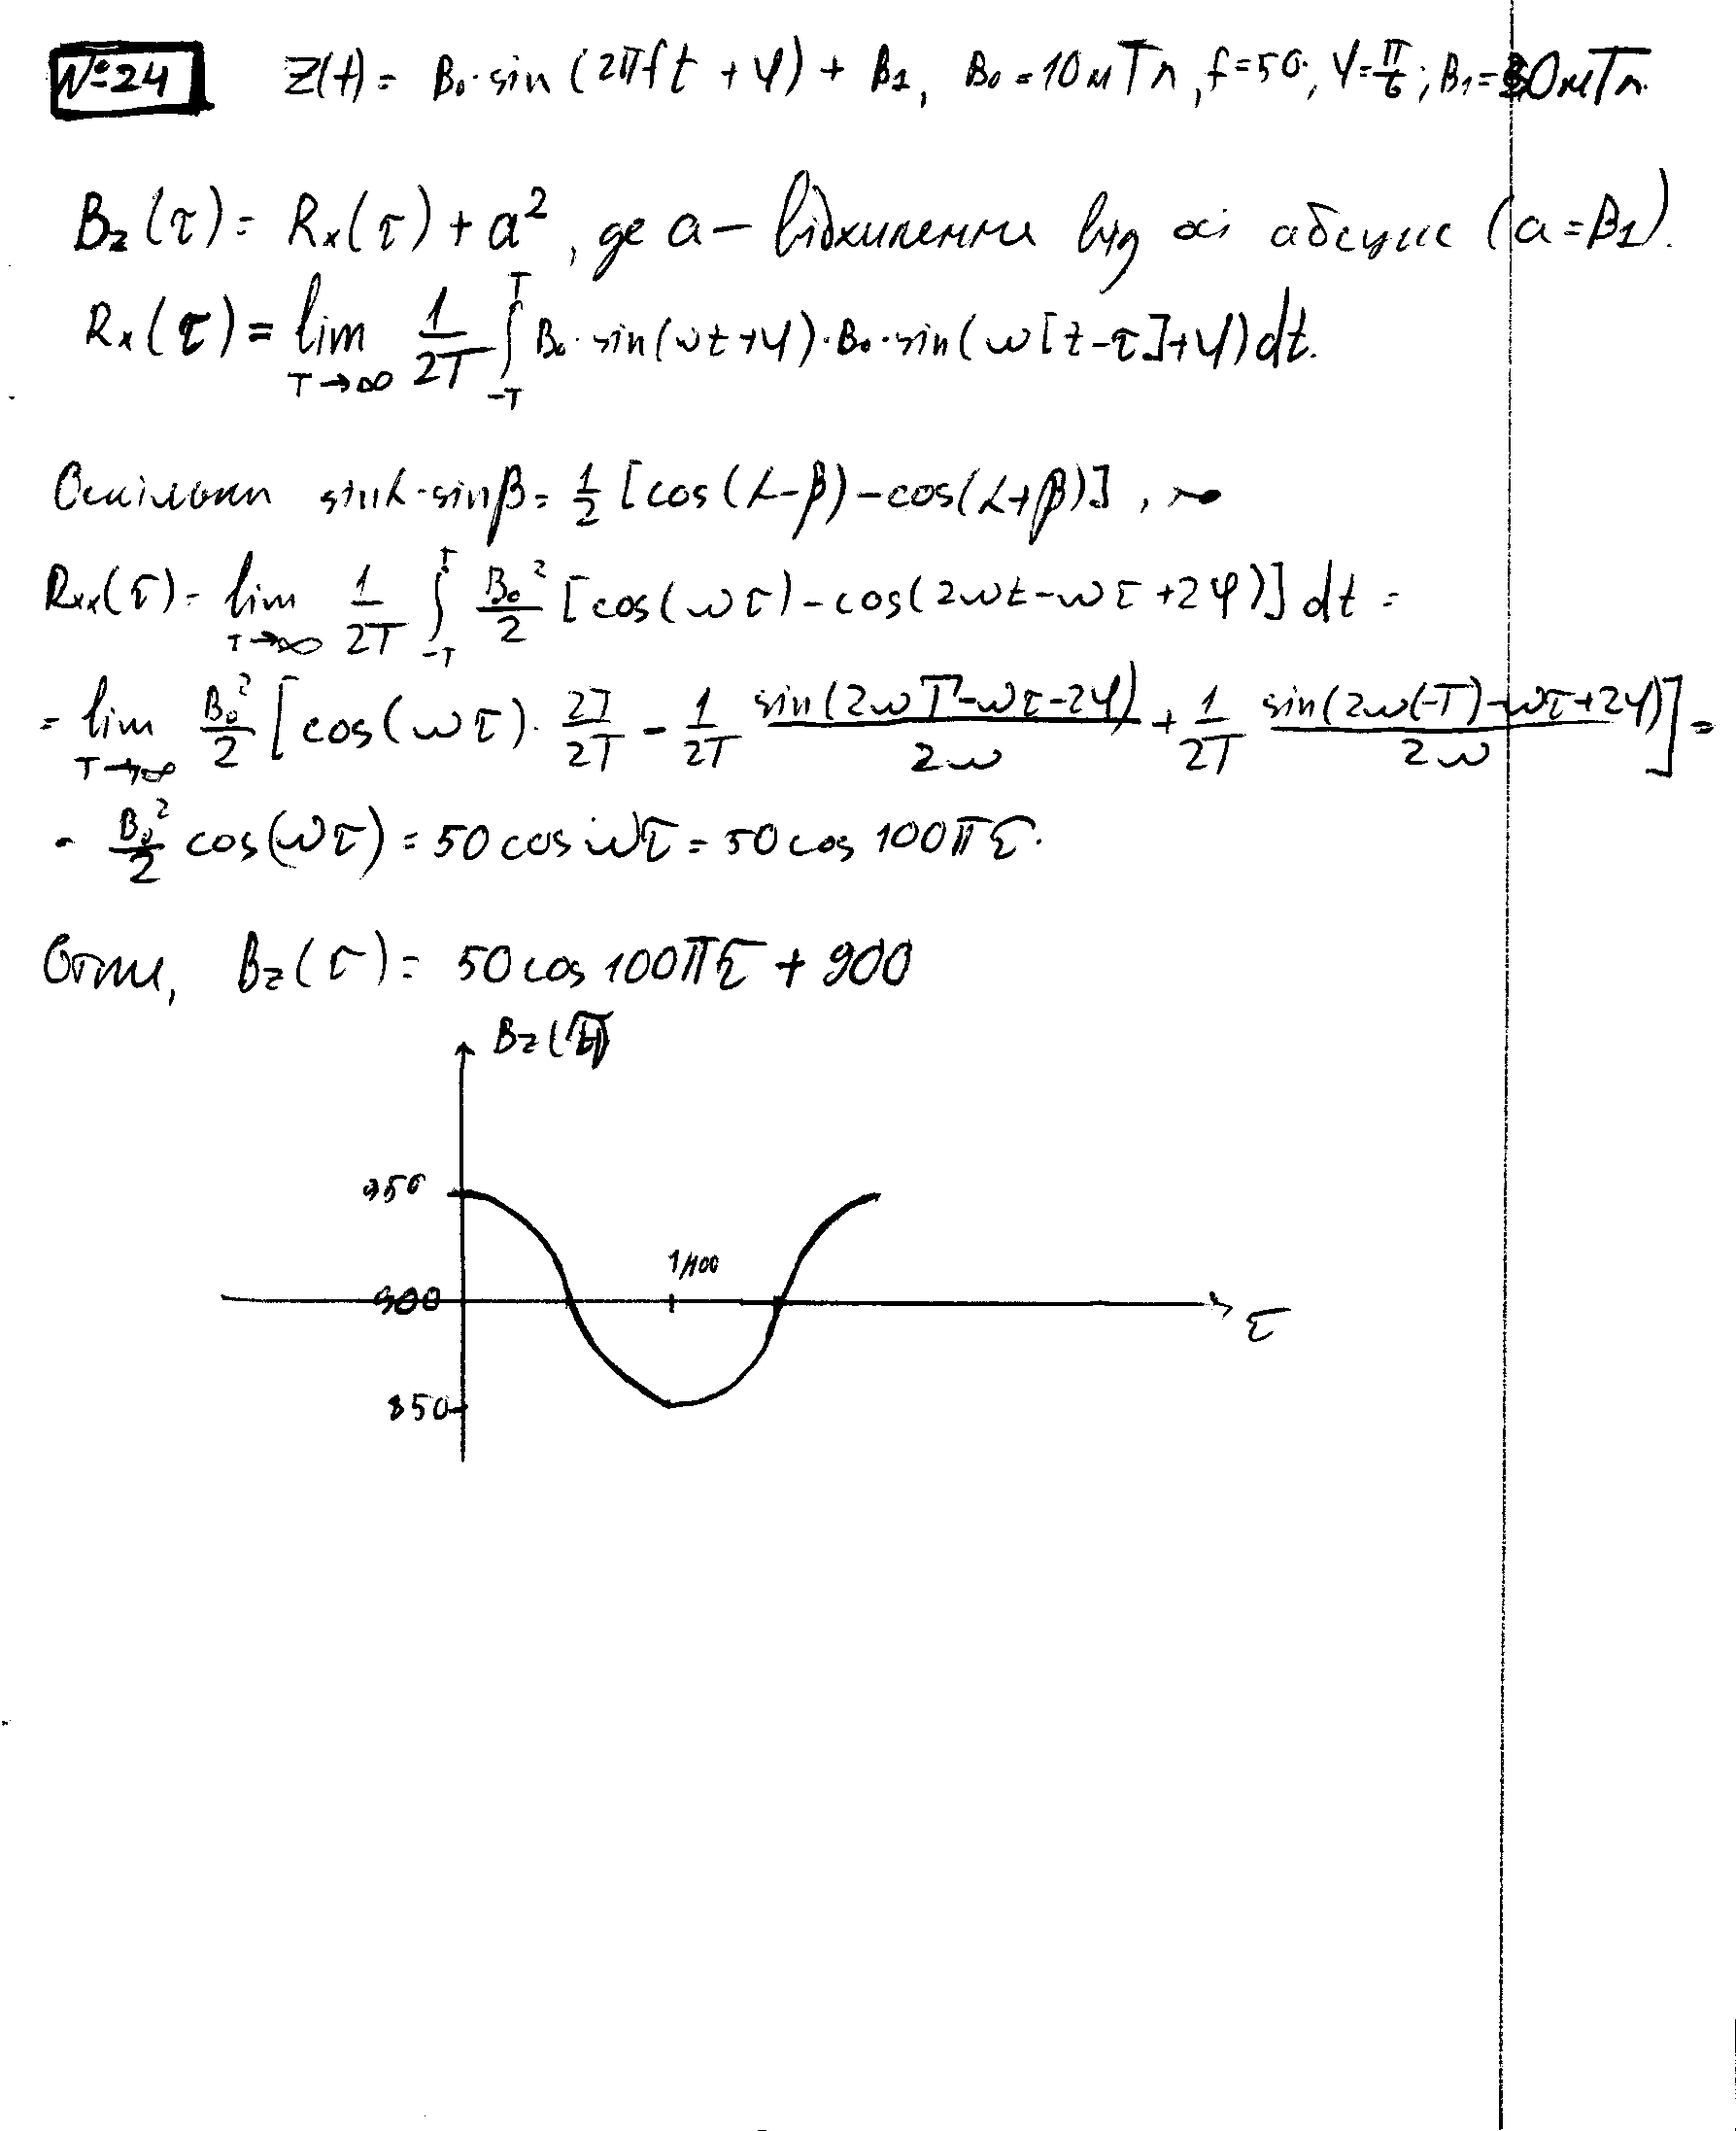 №24 Z(t) = B₀·sin(2πft + φ) + B₁, B₀ = 10мТл, f=50, φ=π/6; B₁=30мТл.
B_z(τ) = Rₓ(τ) + a², де a – відхилення від осі абсцис (a=B₁).
Rₓ(τ) = lim_{T→∞} 1/2T ∫_{-T}^{T} B₀·sin(ωt+φ)·B₀·sin(ω[t-τ]+φ)dt.
Оскільки sinα·sinβ = 1/2 [cos(α-β) - cos(α+β)], то
Rₓₓ(τ) = lim_{T→∞} 1/2T ∫_{-T}^{T} B₀²/2 [cos(ωτ) - cos(2ωt-ωτ+2φ)] dt =
= lim_{T→∞} B₀²/2 [cos(ωτ)· 2T/2T - 1/2T sin(2ωT-ωτ-2φ)/2ω + 1/2T sin(2ω(-T)-ωτ+2φ)/2ω] =
= B₀²/2 cos(ωτ) = 50 cos ωτ = 50 cos 100πτ.
Отже, B_z(τ) = 50 cos 100πτ + 900
B_z(τ)
950
1/100
900
τ
850